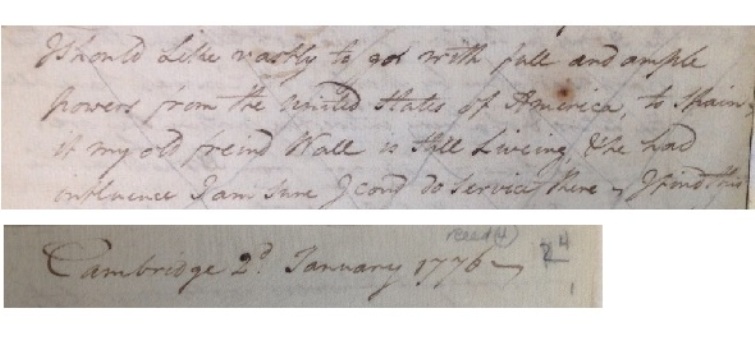 I should Like vastly to go with full and ample
powers from the United States of America, to Spain
if my old freind Wall is still Liveing, & he had
influence I am sure I coud do service there – I find this
Cambridge 2d January 1776 –